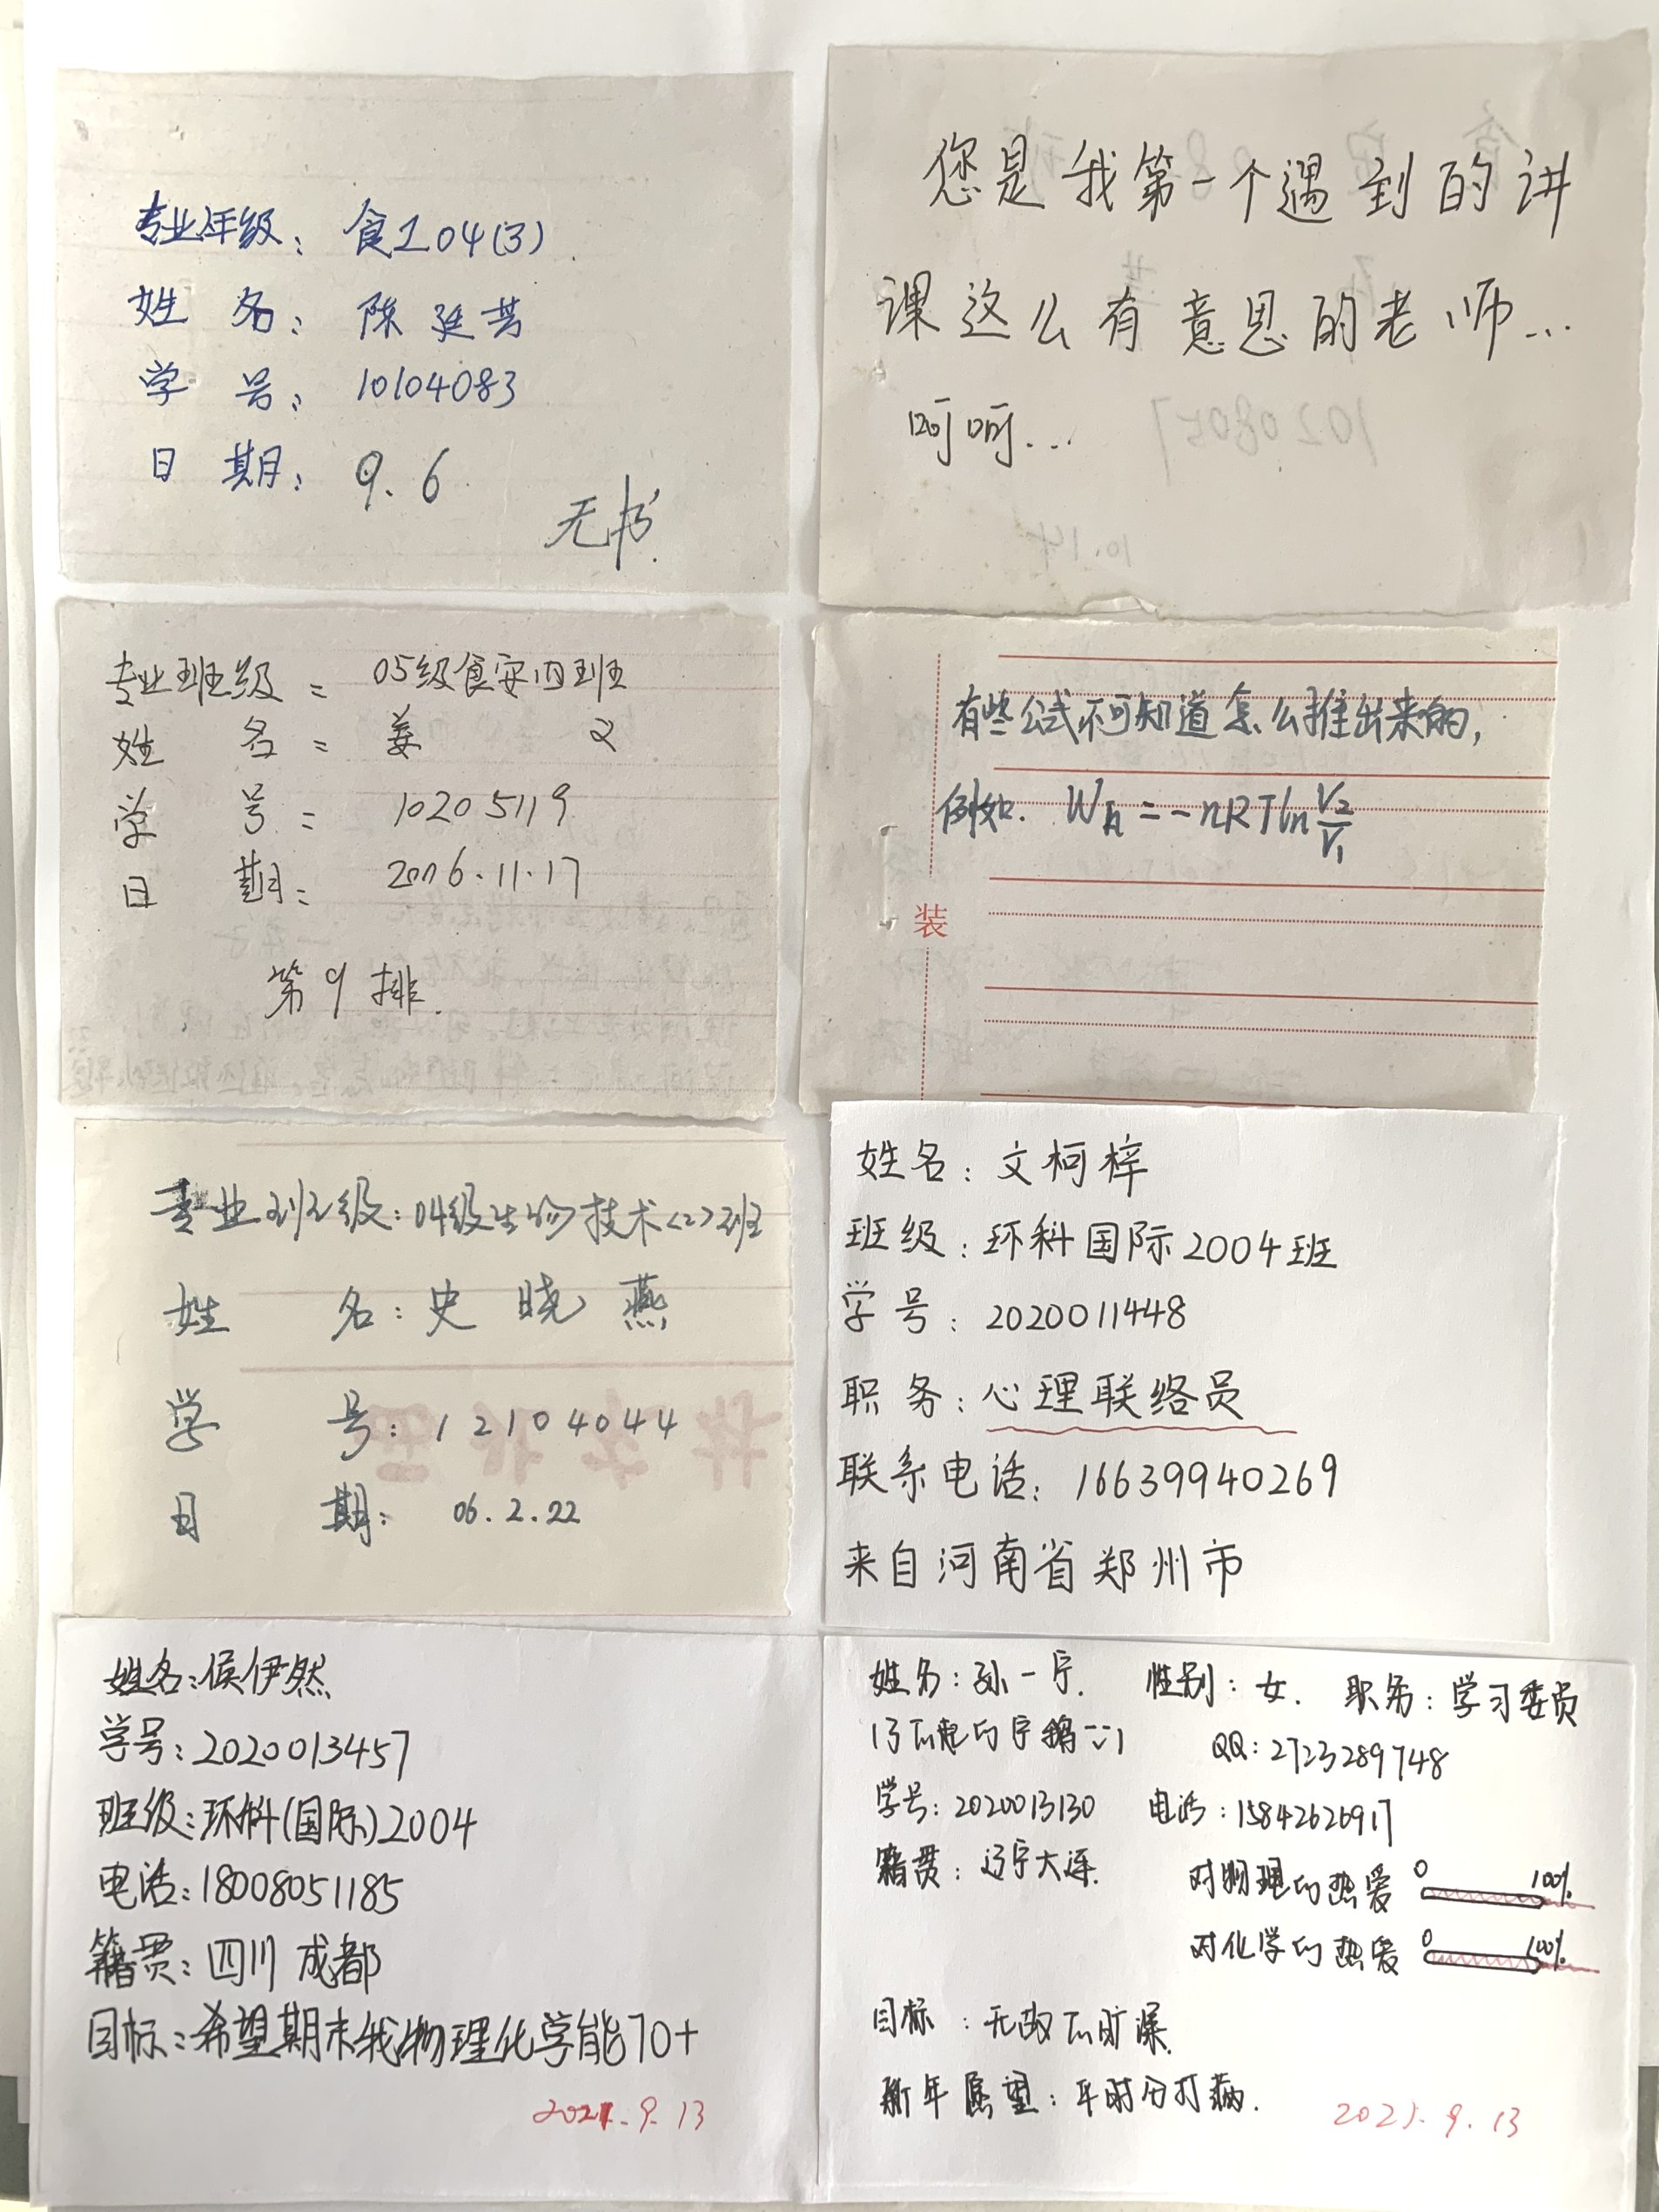 专业年级：食工04(3)
姓 名：陈延芳
学 号：10104083
日 期：9.6
无书
您是我第一个遇到的讲
课这么有意思的老师...
呵呵...
专业班级：05级食安四班
姓 名：姜 义
学 号：10205119
日 期：2006.11.17
第9排.
有些公式不可知道怎么推出来的，
例如. W =-nRTln V₂/V₁
装
专业班级：04级生物技术<2>班
姓 名：史晓燕
学 号：12104044
日 期：06.2.22
姓名：文柯梓
班级：环科国际2004班
学号：2020011448
职务：心理联络员
联系电话：16639940269
来自河南省郑州市
姓名：侯伊然
学号：2020013457
班级：环科(国际)2004
电话：18008051185
籍贯：四川 成都
目标：希望期末我物理化学能70+
2021.9.13
姓名：孙一宁. 性别：女. 职务：学习委员
QQ：2723289748
学号：2020013130 电话：15842626917
籍贯：辽宁大连.
对物理的热爱 0 100%
对化学的热爱 0 100%
目标：无故不旷课.
新年愿望：平时分打满.
2021.9.13